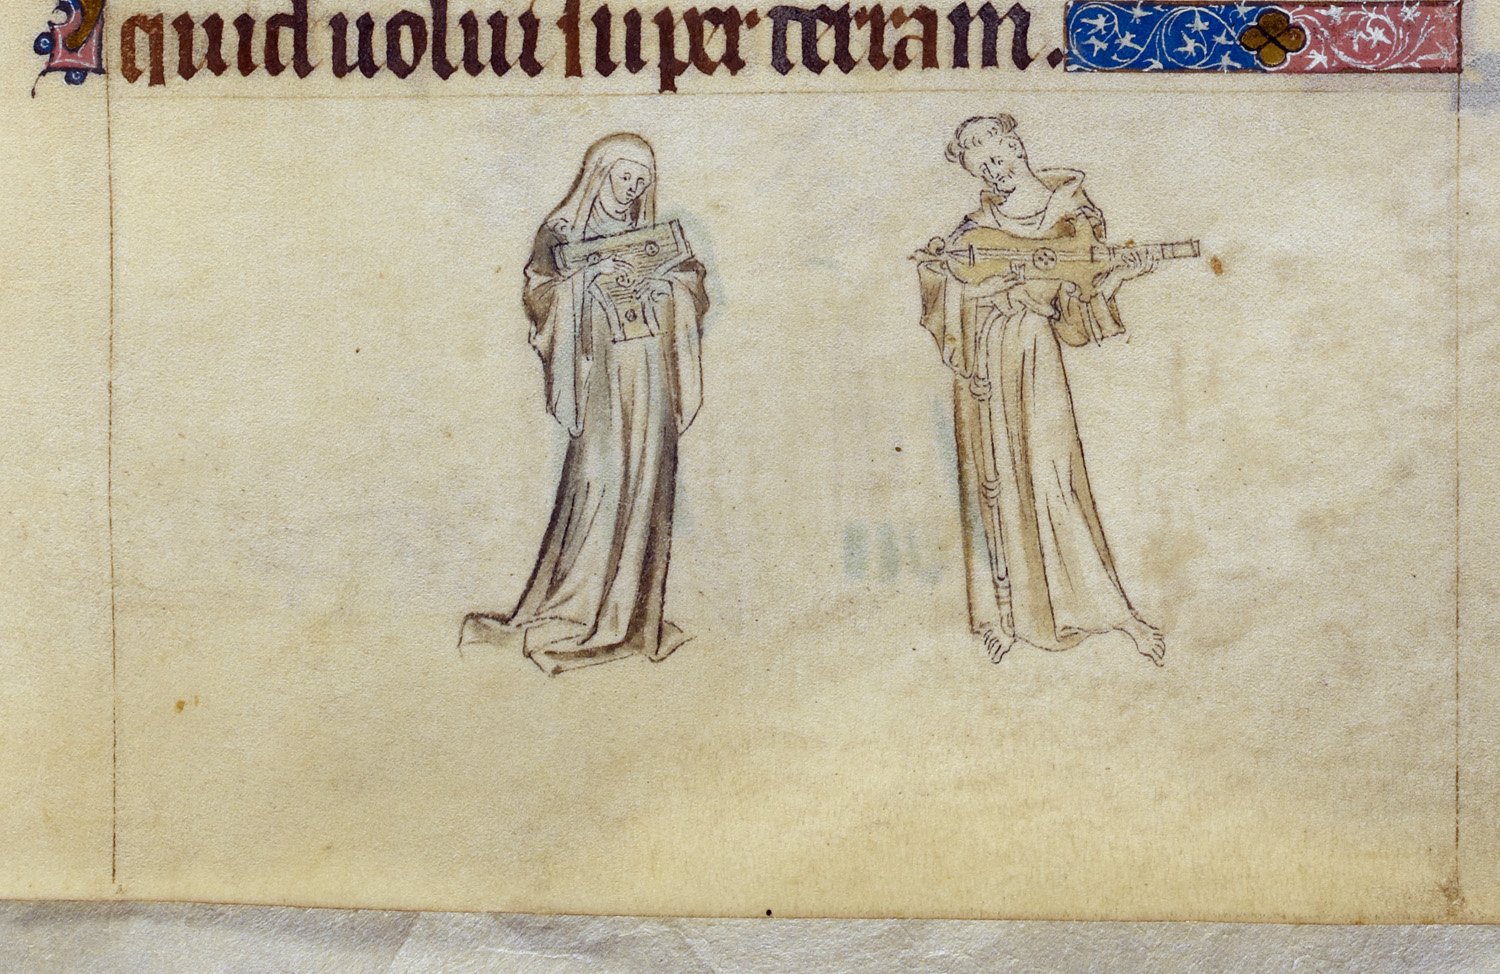 quid uolui super terram.